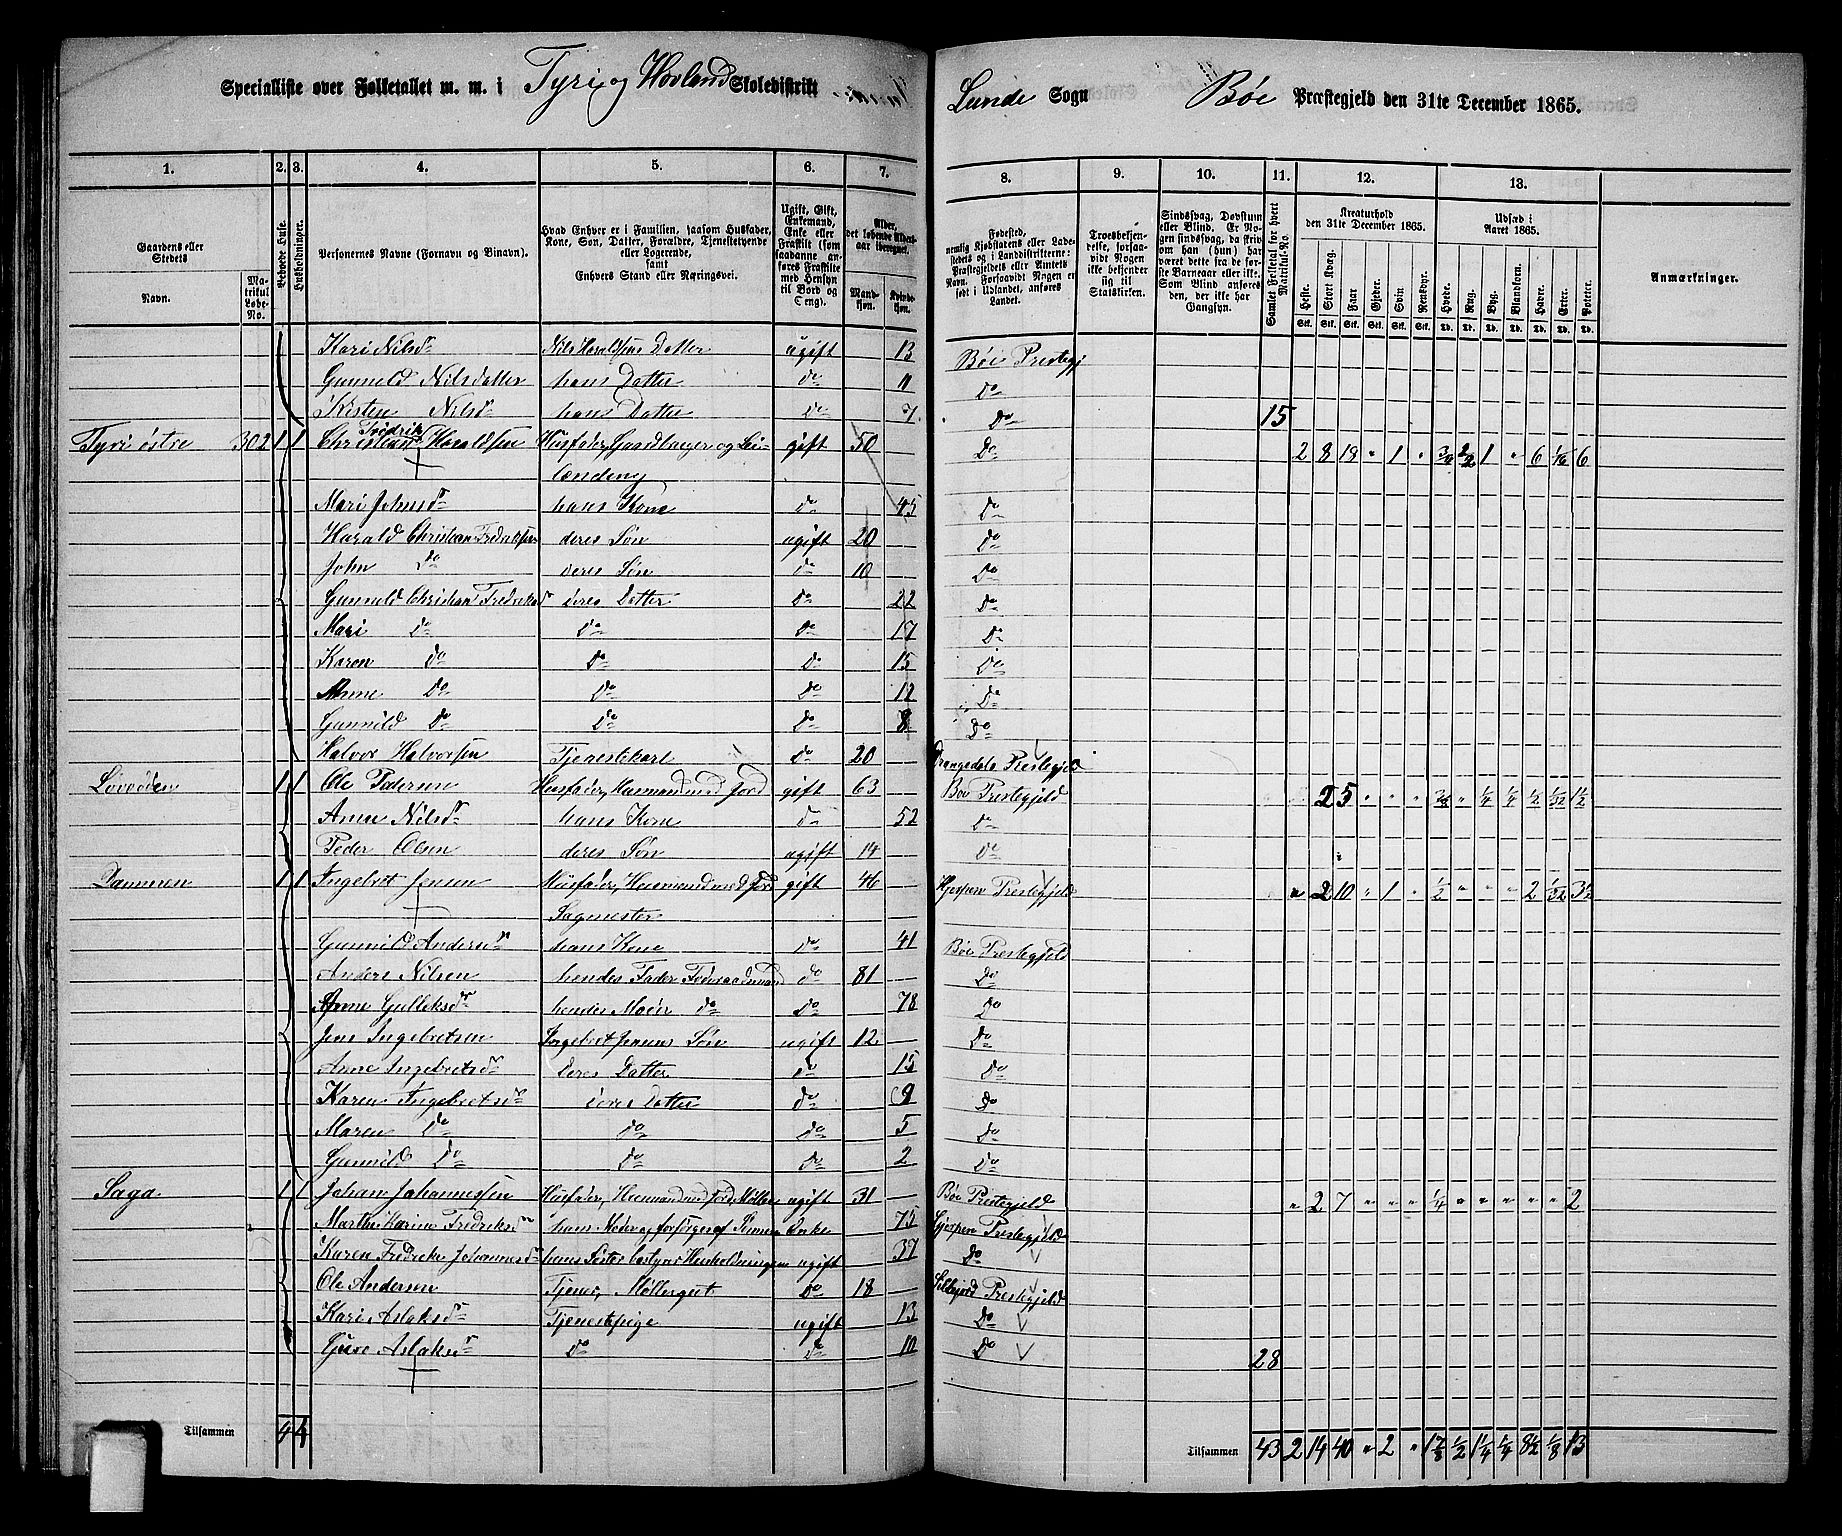 Specialliste over Folketallet m. m. i Tyri og Hovland Skoledistrikt
Lunde Sogn Bøe Præstegjeld den 31te December 1865.
1. 2. 3. 4. 5. 6. 7. 8. 9. 10. 11. 12. 13.
Gaardens eller Stedets
Navn. Matrikul Løbe-No.
Beboede Huse.
Husholdninger.
Personernes Navne (Fornavn og Binavn).
Hvad Enhver er i Familien, saasom Husfader, Kone, Søn, Datter, Forældre, Tjenestetyende eller Logerende, samt Enhvers Stand eller Næringsvei.
Ugift, Gift, Enkemand, Enke eller Fraskilt (som saadanne anføres Fraskilte med Hensyn til Bord og Seng).
Alder, det løbende Alders-aar iberegnet.
Mandkjøn. Kvindekjøn.
Fødested, nemlig Kjøbstadens eller Ladestedets og i Landdistrikterne: Præstegjeldets eller Amtets Navn. Forsaavidt Nogen er født i Udlandet, anføres Landet.
Troesbekjendelse, forsaavidt Nogen ikke bekjender sig til Statskirken.
Sindssvag, Døvstum eller Blind.
Samlet Folketal for hvert Matrikul-No.
Kreaturhold den 31te December 1865.
Heste. Stort Kvæg. Faar. Gjeder. Svin. Rensdyr.
Udsæd i Aaret 1865.
Hvede. Rug. Byg. Blandkorn. Havre. Erter. Poteter.
Anmærkninger.
Kari Nilsdr Nils Haraldsens Datter ugift 13 Bøe Prestegj
Gunnild Nilsdatter hans Datter do 11 do
Kisten Nilsdr hans Datter do 7 do 15
Tyri östre 302 1 1 Christian Fredrik Haraldsen Husfader, Gaardbruger og Lei- gift 50 do 2 8 18 " 1 " 1 " 6 1/16 6
lænding
Mari Johnsdr hans Kone do 45 do
Harald Christian Fredriksen deres Søn ugift 20 do
John do deres Søn do 10 do
Gunnild Christian Fredriksdr deres Datter do 22 do
Mari do do do 17 do
Karen do do do 15 do
Anne do do do 12 do
Gunnild do do do 8 do
Halvor Halvorsen Tjenestekarl do 20 Drangedals Prestegjeld
1 1 Ole Pedersen Husfader, Huusmand med Jord gift 63 Bøe Prestegjeld 2 5 " " " " 1/4 1/4 1/2 1/32 1 1/2
Anne Nilsdr hans Kone do 52 do
Peder Olsen deres Søn ugift 14 do
Dammen 1 1 Ingebret Jensen Husfader, Huusmand med Jord gift 46 Gjerpen Prestegjeld " 2 10 " 1 " 1/2 " " " 2 1/32 3 1/2
Sagmester
Gunnild Andersdr hans Kone do 41 Bøe Prestegjeld
Anders Nilsen hendes Fader Føderaadsmand do 81 do
Anne Gulleksdr hendes Moder do do 78 do
Jens Ingebretsen Ingebret Jensens Søn ugift 12 do
Anne Ingebretsdr deres Datter do 15 do
Karen Ingebretsdr deres Datter do 9 do
Maren do do do 5 do
Gunnild do do do 2 do
Saga 1 1 Johan Johannessen Husfader, Huusmand med Jord, Møller ugift 31 Bøe Prestegjeld " 2 7 " " " 1/4 " " " " " 2
Marthe Karine Fredriksdr hans Moder og forsørges af Sønnen Enke 75 Gjerpen Prestegjeld
Karen Fredrike Johannesdr hans Søster bestyrer Husholdningen ugift 37 do
Ole Andersen Tjener, Møllergut do 18 Prestegjeld
Kari Aslaksdr Tjenestepige ugift 13 do
Aslaksdr do do 10 do 28
Tilsammen 4 4
Tilsammen 43 2 14 40 " 2 " 1 7/8 1/2 1 1/4 1/4 8 1/2 1/8 13